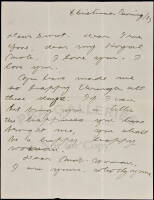 Christmas Evening/
Dear Sweet dear I
your dear my
note. I love you. I
love you.
You have made me
so happy through all
these days. If I can
but bring you a little
the happiness you have
brought me, you shall
be a happy, happy
woman.
Dear Sweet Woman,
I am yours,